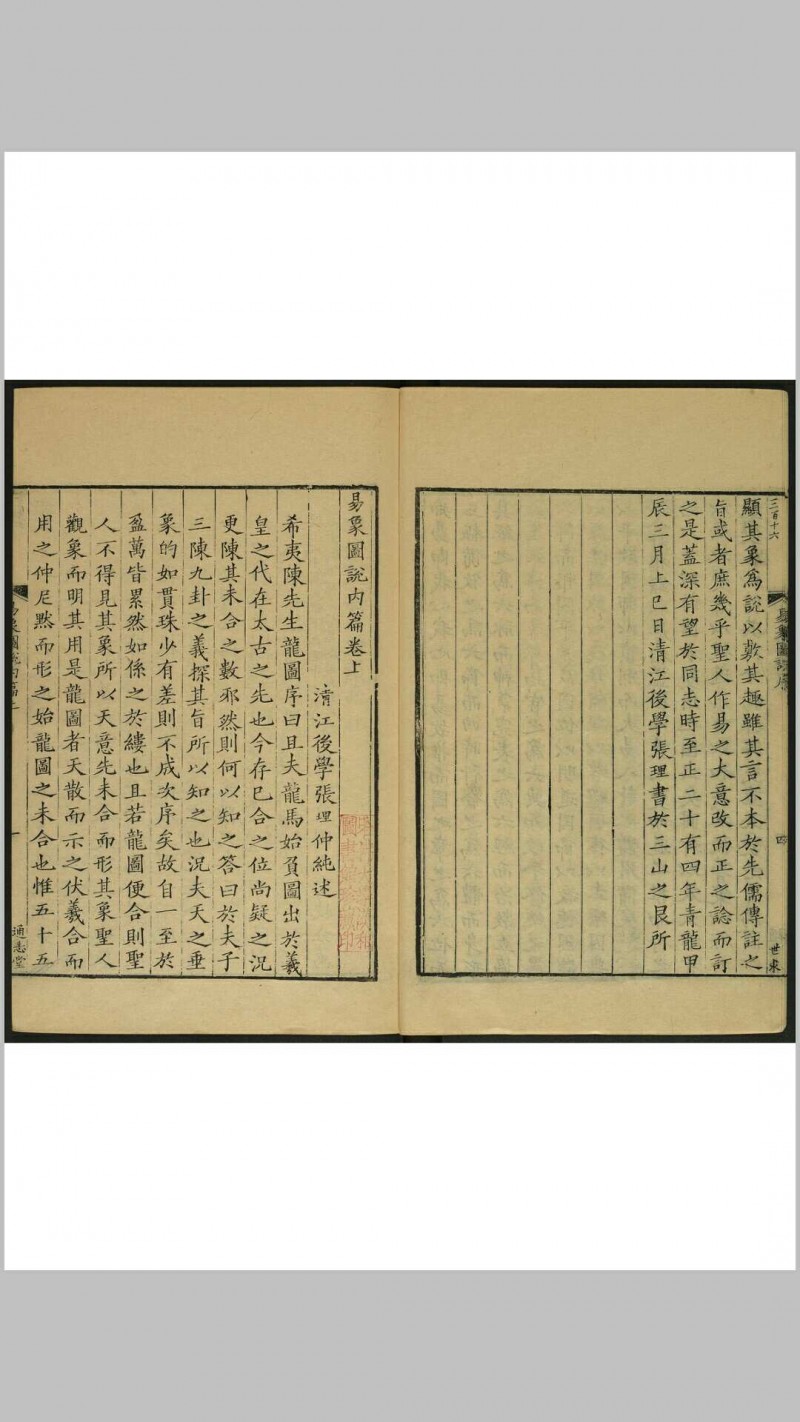 三百十六
易象圖說序
四
世來
顯其象爲說以敷其趣雖其言不本於先儒傳註之
旨或者庶幾乎聖人作易之大意改而正之諗而訂
之是蓋深有望於同志時至正二十有四年青龍甲
辰三月上巳日清江後學張理書於三山之艮所
易象圖說內篇卷上
清江後學張理仲純述
希夷陳先生龍圖序曰且夫龍馬始負圖出於羲
皇之代在太古之先也今存已合之位尚疑之況
更陳其未合之數邪然則何以知之答曰於夫子
三陳九卦之義探其旨所以知之也況夫天之垂
象的如貫珠少有差則不成次序矣故自一至於
盈萬皆累然如係之於縷也且若龍圖便合則聖
人不得見其象所以天意先未合而形其象聖人
觀象而明其用是龍圖者天散而示之伏羲合而
用之仲尼默而形之始龍圖之未合也惟五十五
易象圖說內篇上
一
通志堂